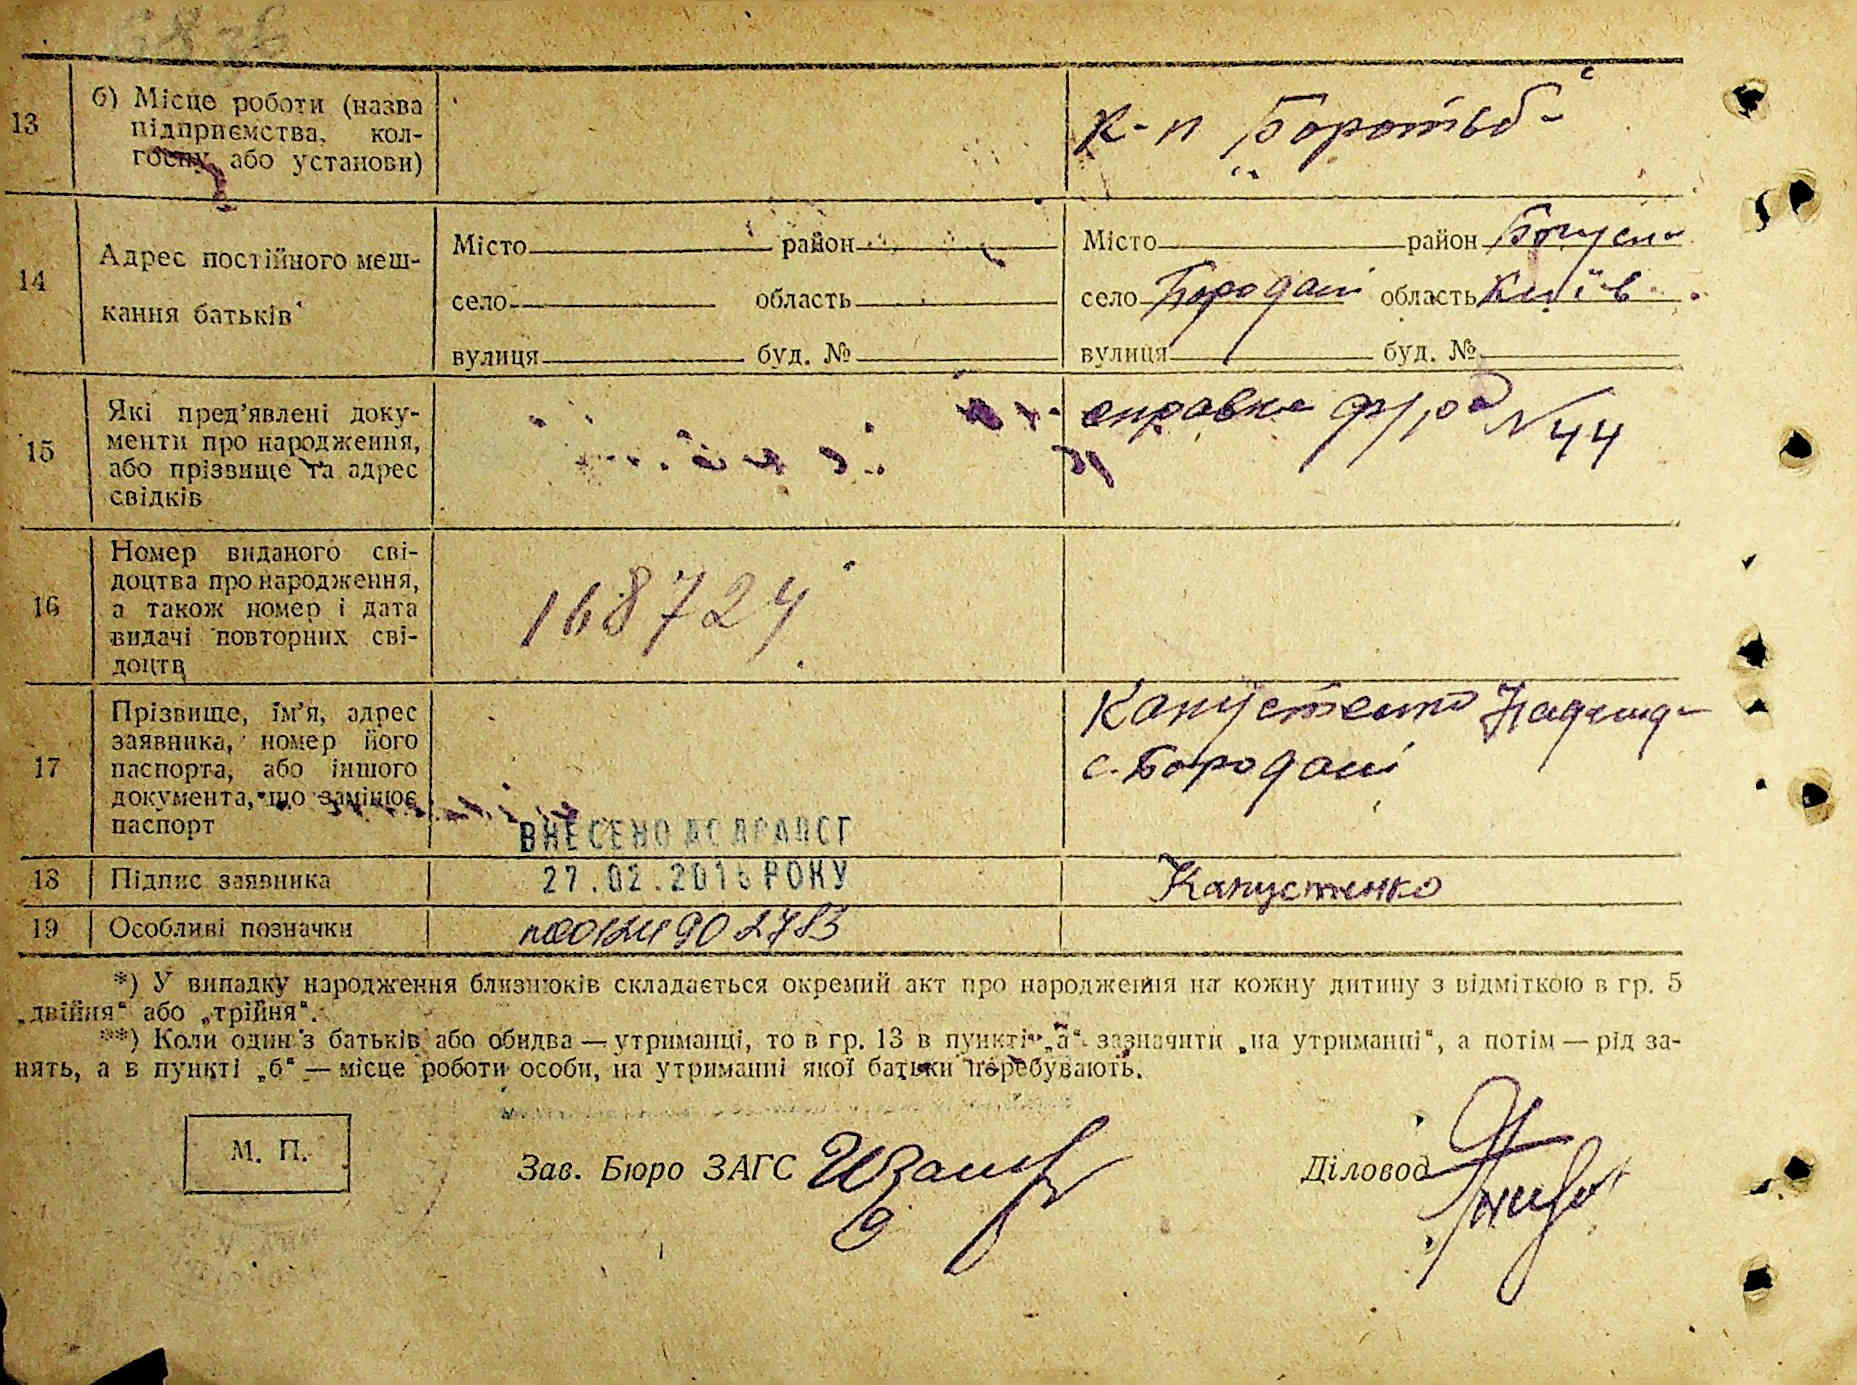 13
б) Місце роботи (назва
підприємства, кол-
госпу або установи)
к-п „Боротьб-
14
Адрес постійного меш-
кання батьків
Місто район
село область
вулиця буд. №
Місто район Богусл-
село Бородані область Київ-
вулиця буд. №
15
Які пред'явлені доку-
менти про народження,
або прізвище та адрес
свідків
справка № 44
16
Номер виданого сві-
доцтва про народження,
а також номер і дата
видачі повторних сві-
доцтв
168724
17
Прізвище, ім'я, адрес
заявника, номер його
паспорта, або іншого
документа, що замінює
паспорт
Капустенко Надежда
с. Бородані
ВНЕСЕНО ДО ДРАЦСГ
27.02.2016 РОКУ
18
Підпис заявника
Капустенко
19
Особливі позначки
*) У випадку народження близнюків складається окремий акт про народження на кожну дитину з відміткою в гр. 5
„двійня“ або „трійня“.
**) Коли один з батьків або обидва — утриманці, то в гр. 13 в пункті „а“ зазначити „на утриманні“, а потім — рід за-
нять, а в пункті „б“ — місце роботи особи, на утриманні якої батьки перебувають.
М. П.
Зав. Бюро ЗАГС
Діловод